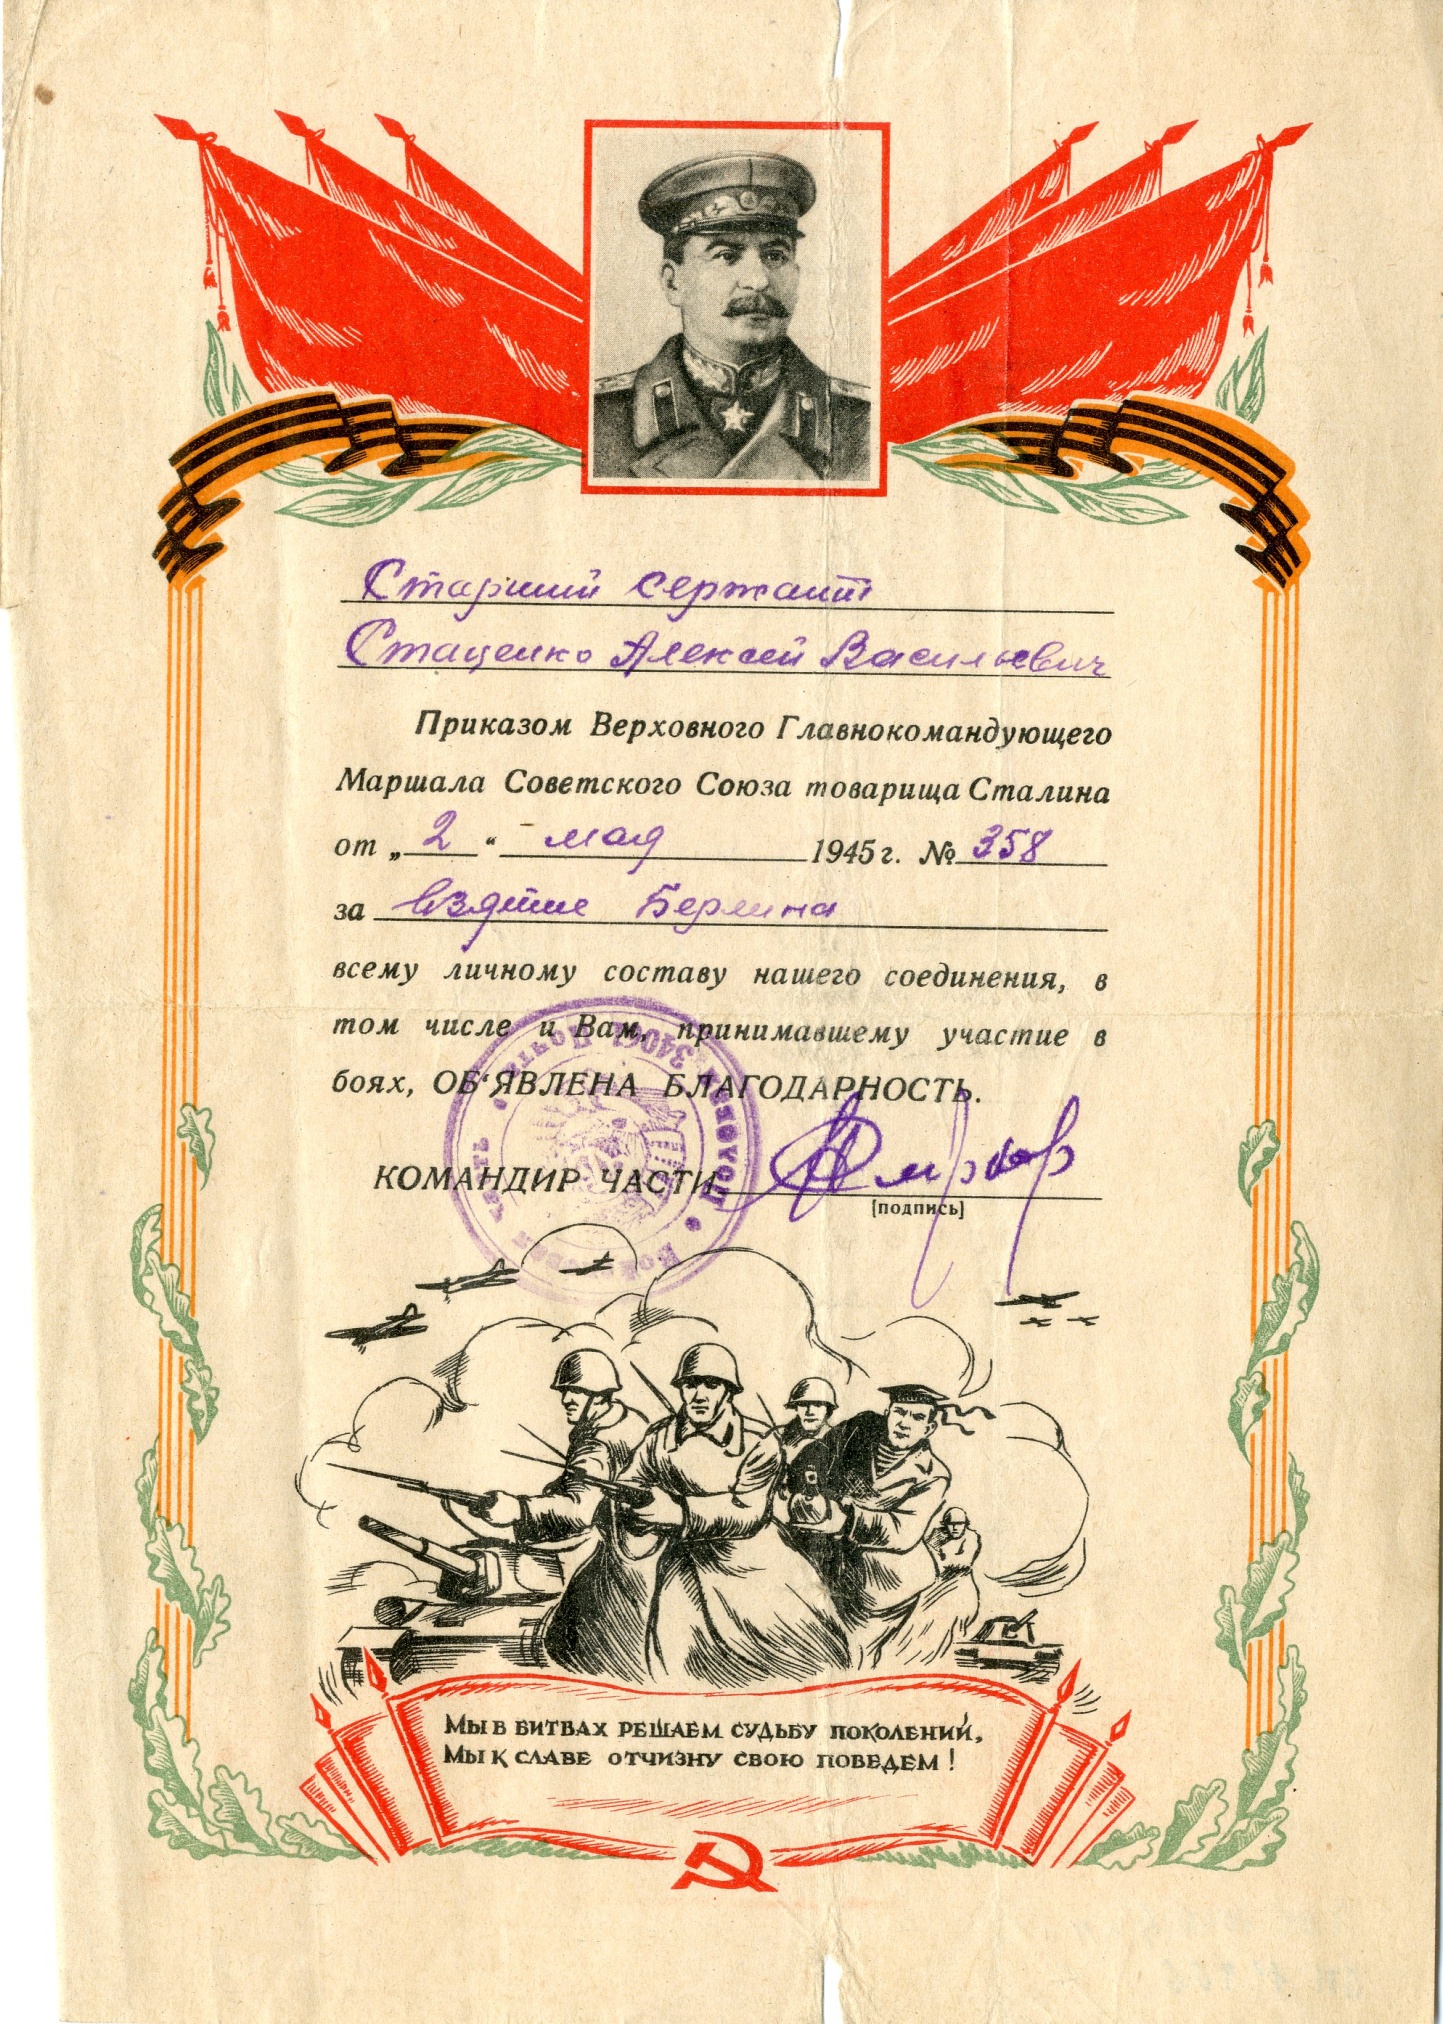 Старший сержант
Стаценко Алексей Васильевич
Приказом Верховного Главнокомандующего
Маршала Советского Союза товарища Сталина
от „2“ мая 1945 г. № 358
за взятие Берлина
всему личному составу нашего соединения, в
том числе и Вам, принимавшему участие в
боях, ОБ‘ЯВЛЕНА БЛАГОДАРНОСТЬ.
КОМАНДИР ЧАСТИ
[подпись]
Полевая почта 34062
МЫ В БИТВАХ РЕШАЕМ СУДЬБУ ПОКОЛЕНИЙ,
МЫ К СЛАВЕ ОТЧИЗНУ СВОЮ ПОВЕДЕМ !